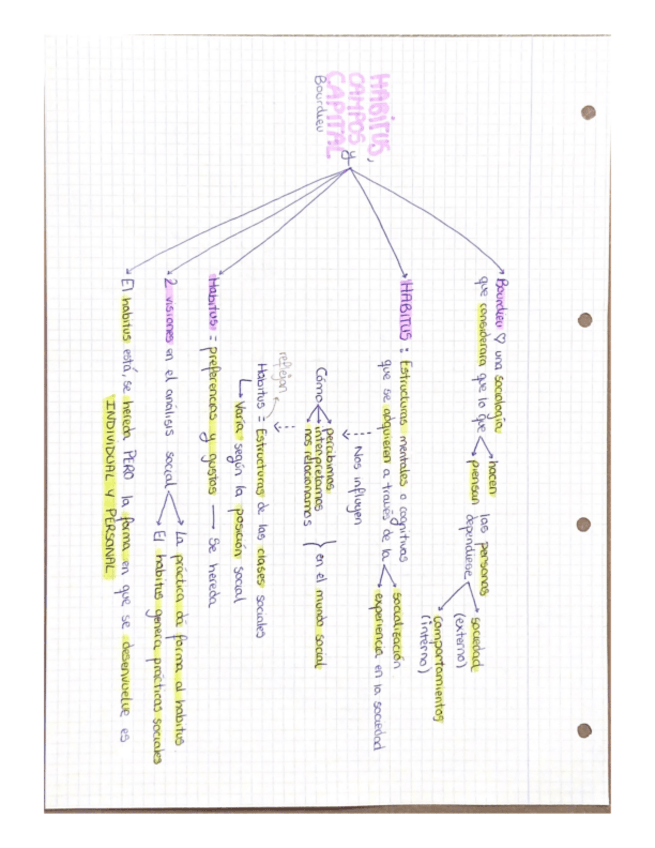 HABITUS,
CAMPOS y
CAPITAL
Bourdieu
Bourdieu ♡ una sociología
que considerara que lo que
hacen
piensan
las personas
dependiese
sociedad
(externo)
comportamientos
(interno)
HABITUS: Estructuras mentales o cognitivas
que se adquieren a través de la
socialización
experiencia en la sociedad
Nos influyen
Cómo
percibimos
interpretamos
nos relacionamos
en el mundo social
reflejan
Habitus = Estructuras de las clases sociales
Varía según la posición social
Habitus = preferencias y gustos — Se hereda
2 visiones en el análisis social
La práctica da forma al habitus.
El habitus genera prácticas sociales
El habitus está, se hereda PERO la forma en que se desenvuelve es
INDIVIDUAL Y PERSONAL